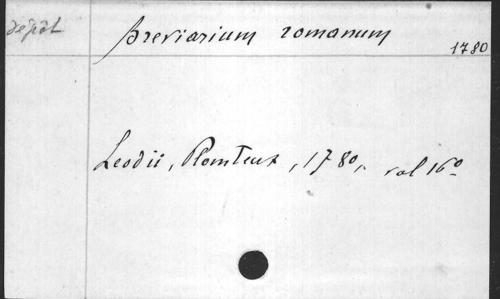 dépôt
Breviarium romanum
1780
Leodii, Plomteux, 1780, vol 16°